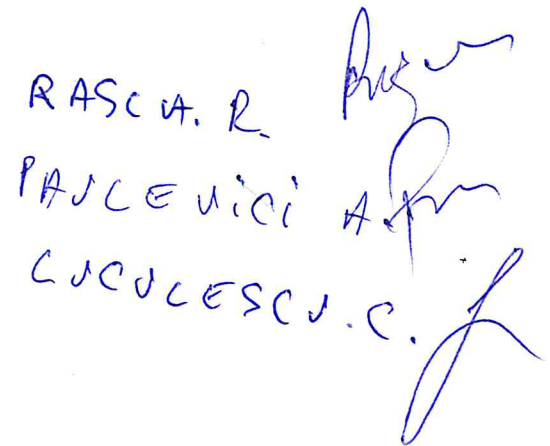 RASCU. R.
PAULEVICI A.
LUCULESCU. C.